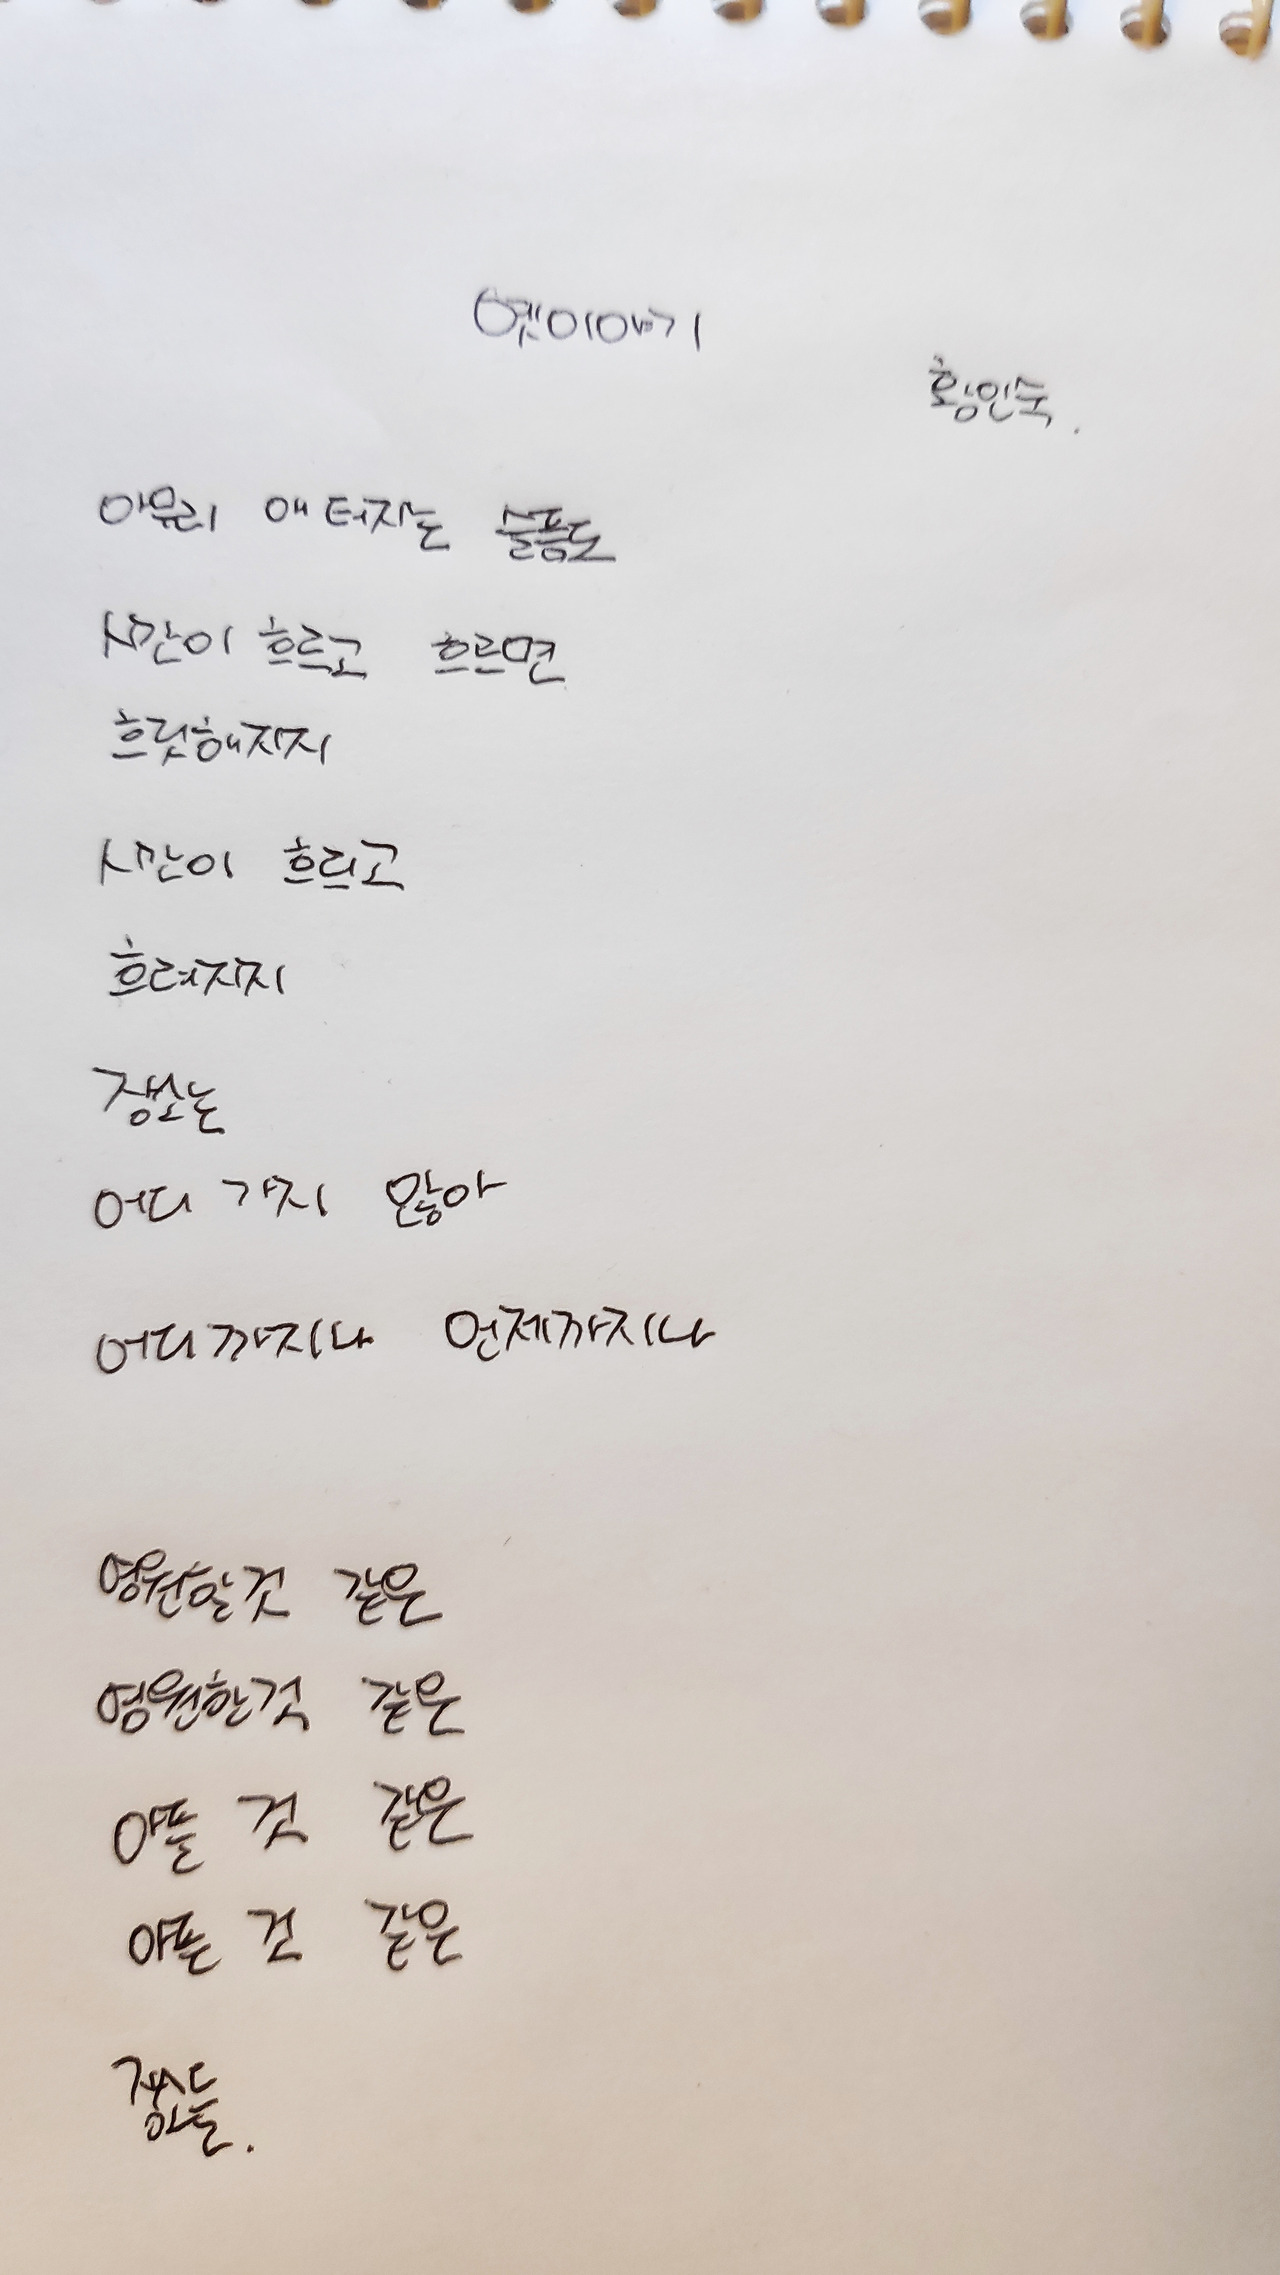 옛이야기
황인숙.
아무리 애 터지는 슬픔도
시간이 흐르고 흐르면
흐릿해지지
시간이 흐르고
흐려지지
장소는
어디 가지 않아
어디까지나 언제까지나
영원할것 같은
영원한것 같은
아플 것 같은
아픈 것 같은
장소들.